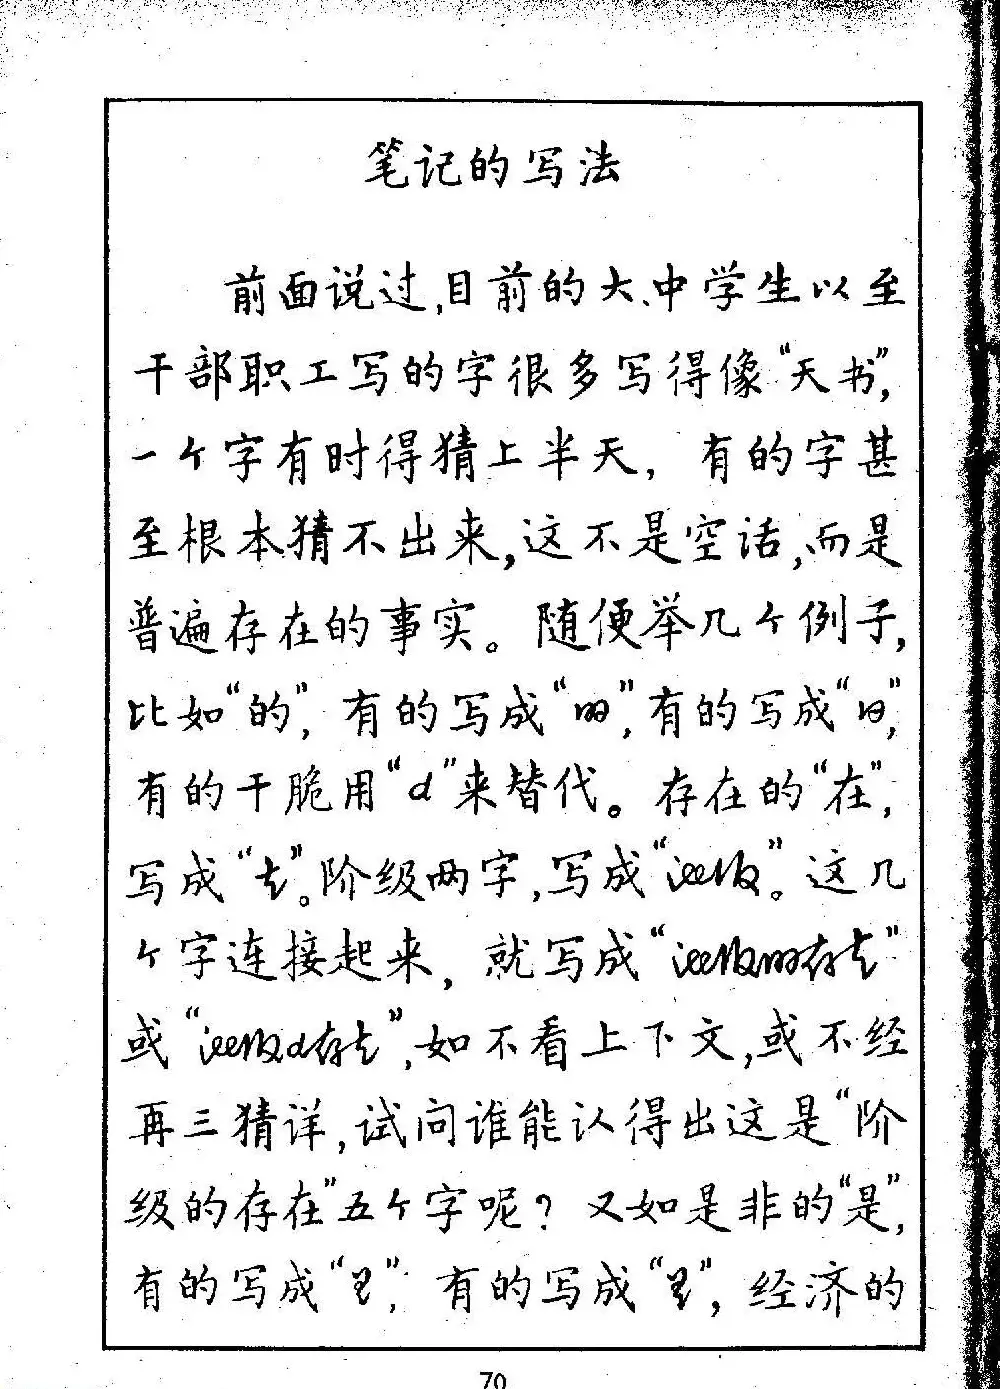 笔记的写法
前面说过,目前的大、中学生以至
干部职工写的字很多写得像“天书”,
一个字有时得猜上半天，有的字甚
至根本猜不出来,这不是空话,而是
普遍存在的事实。随便举几个例子,
比如“的”,有的写成“”,有的写成“”,
有的干脆用“d”来替代。存在的“在”,
写成“”。阶级两字,写成“”。这几
个字连接起来，就写成“”
或“”,如不看上下文,或不经
再三猜详,试问谁能认得出这是“阶
级的存在”五个字呢？又如是非的“是”,
有的写成“”;有的写成“”,经济的
70